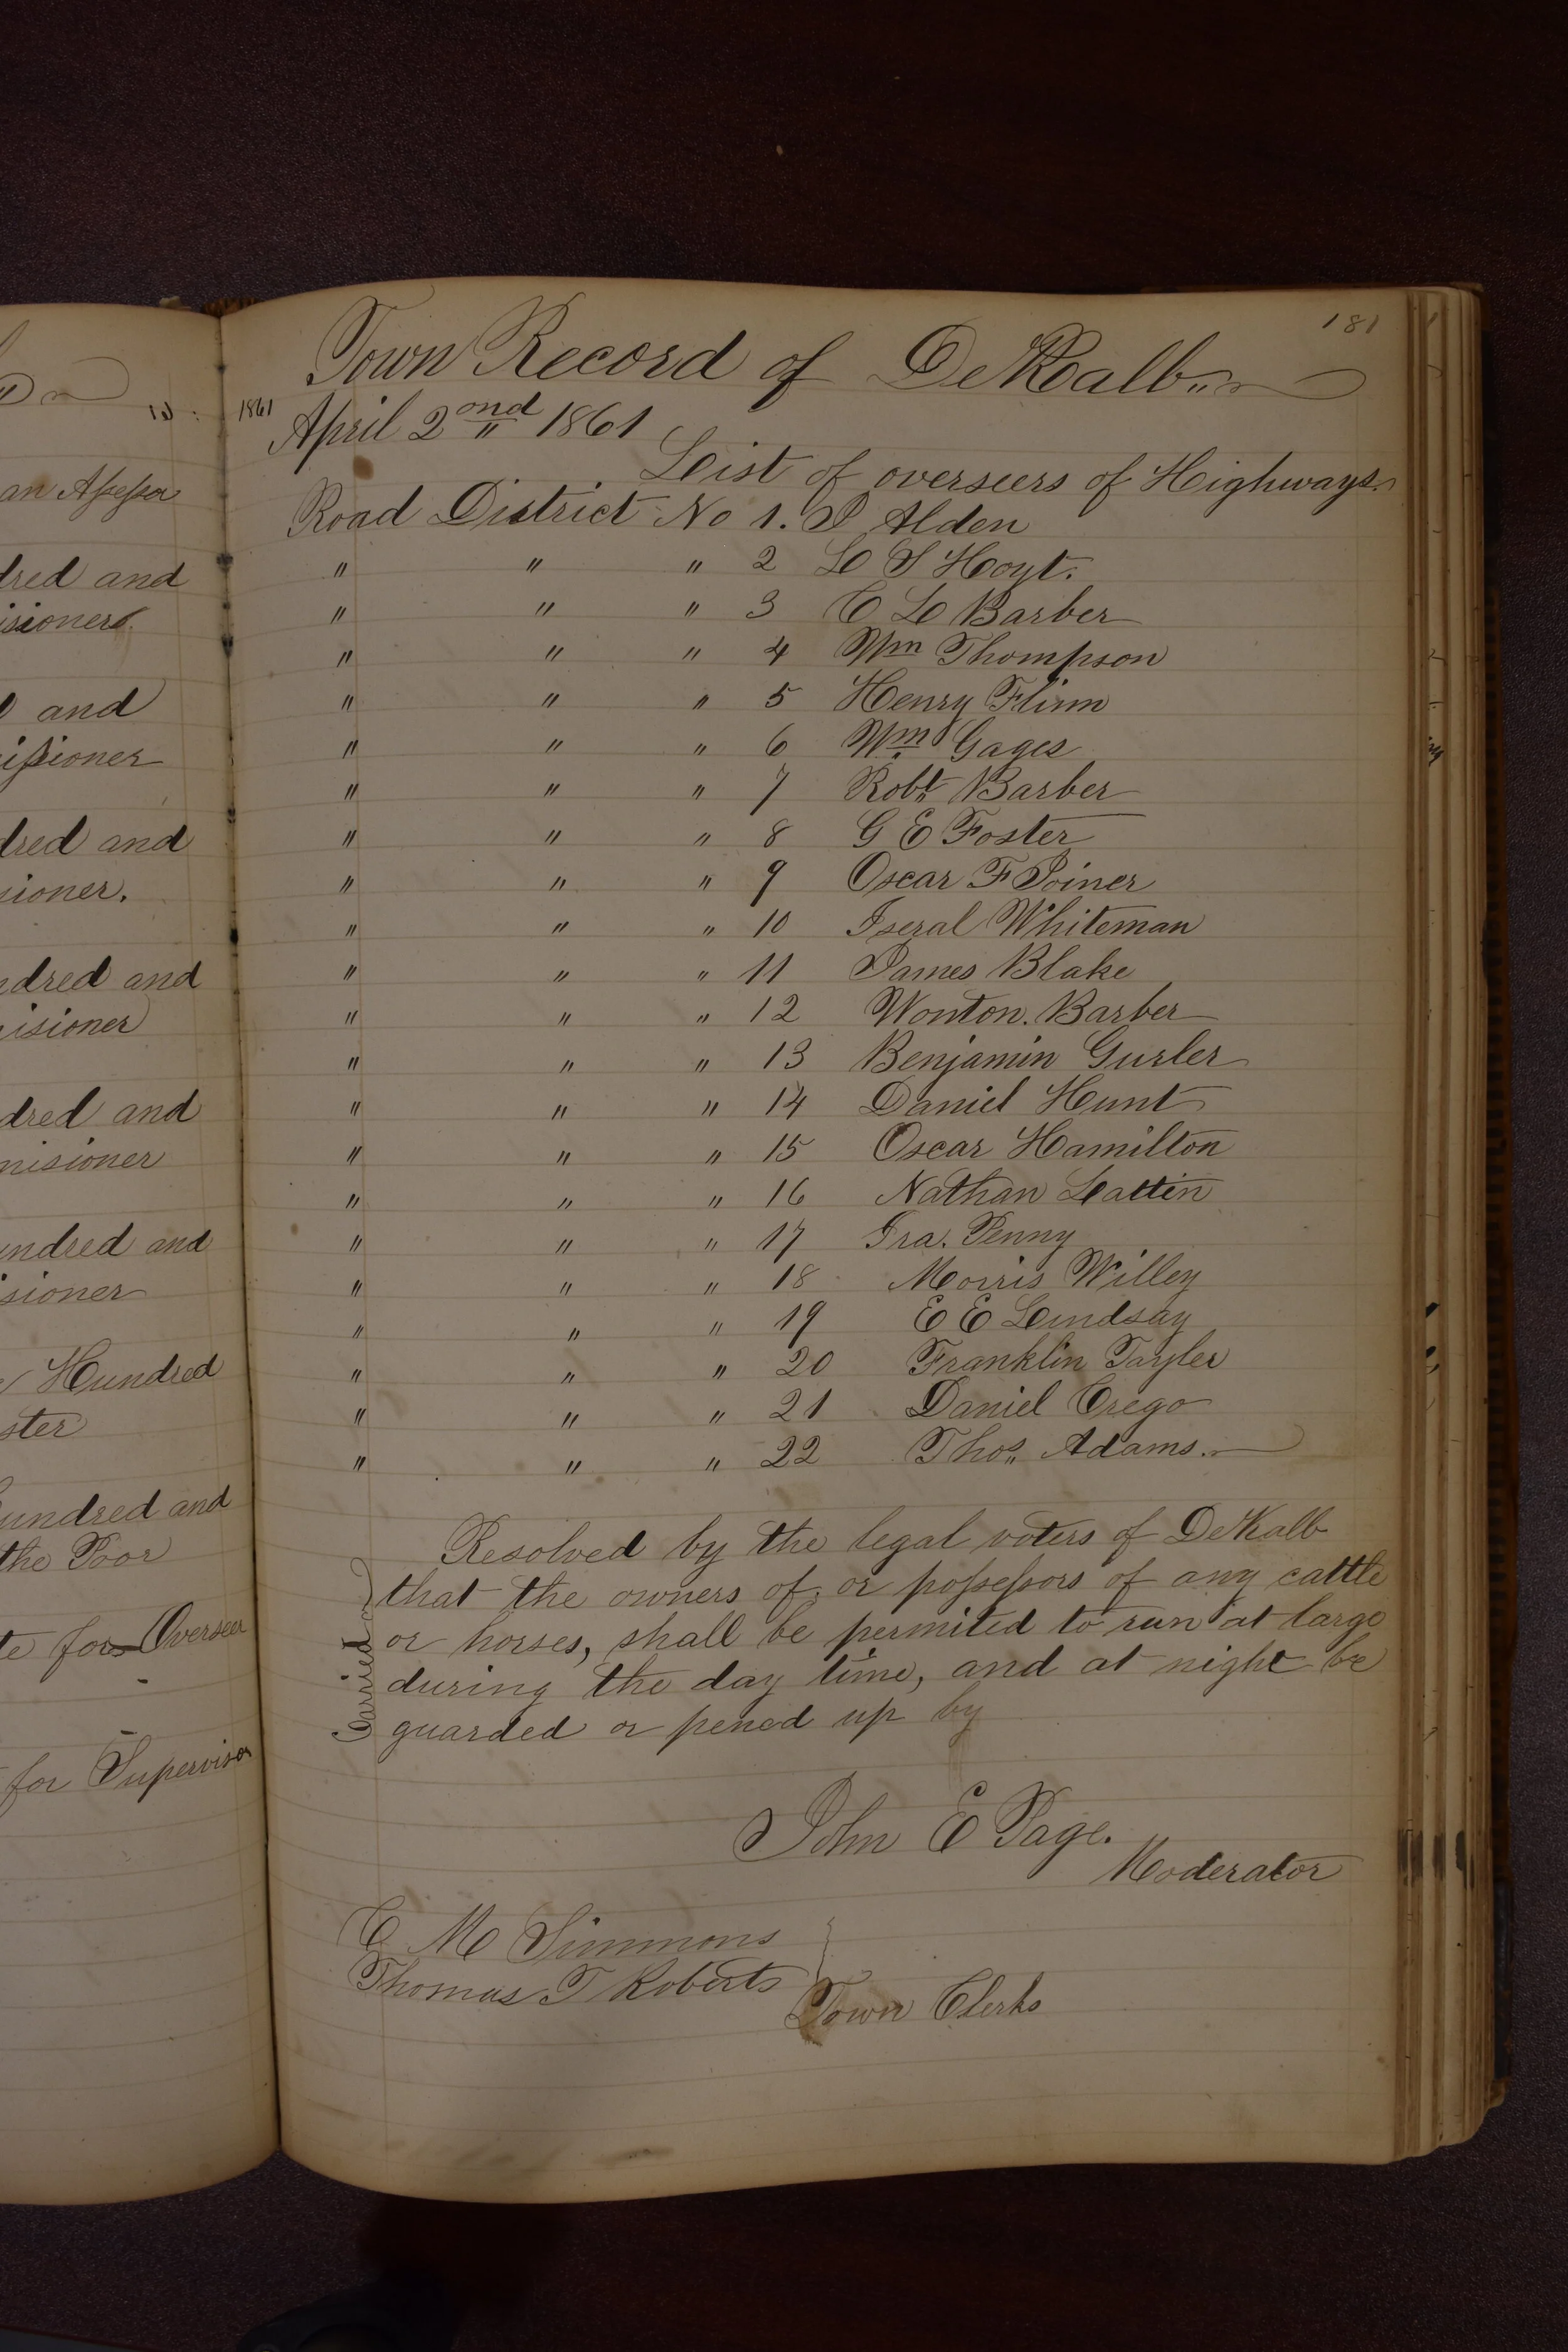 an Assessor
dred and
isioners
and
issioner
dred and
sioner.
ndred and
isioner
dred and
misioner
undred and
sioner
Hundred
ster
undred and
the Poor
te for Overseer
for Supervisor
181
Town Record of DeKalb
1861
April 2ond 1861
List of overseers of Highways.
Road District No 1. J Alden
" " " 2 L S Hoyt.
" " " 3 C L Barber
" " " 4 Wm Thompson
" " " 5 Henry Flinn
" " " 6 Wm Gages
" " " 7 Robt Barber
" " " 8 G E Foster
" " " 9 Oscar F Joiner
" " " 10 Iseral Whiteman
" " " 11 James Blake
" " " 12 Wonton. Barber
" " " 13 Benjamin Gurler
" " " 14 Daniel Hunt
" " " 15 Oscar Hamilton
" " " 16 Nathan Lattin
" " " 17 Ira. Penny
" " " 18 Morris Willey
" " " 19 E E Lindsay
" " " 20 Franklin Tayler
" " " 21 Daniel Crego
" " " 22 Thos. Adams.
Resolved by the legal voters of DeKalb
that the owners of, or possessors of any cattle
or horses, shall be permited to run at large
during the day time, and at night be
guarded or pened up by
Carried
John E Page.
Moderator
C M Simmons
Thomas T Roberts
Town Clerks